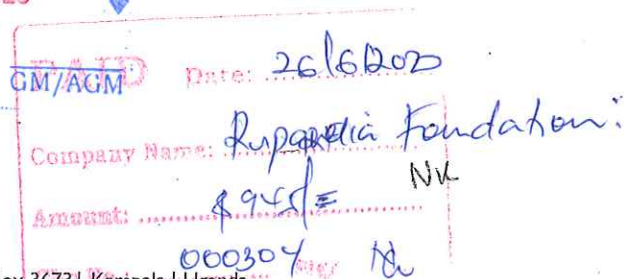 PAID Date: 26/6/2020
GM/AGM
Company Name: Ruparelia Foundation:
NK
Amount: $945/=
000304
3673 | Kampala | Uganda